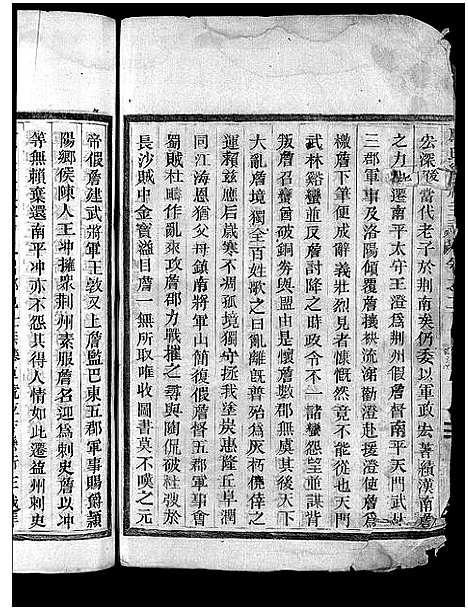 宏深後當代老子於荆南矣仍委以軍政宏著績漢南詹
之力也遷南平太守王澄爲荆州假詹督南平天門武陵
三郡軍事及洛陽傾覆詹攘袂流涕勸澄赴援澄使詹爲
檄詹下筆便成辭義壯烈見者慷慨然竟不能從也天門
武林谿蠻並反詹討降之時政令不一諸蠻怨望並謀背
叛詹召蠻酋破銅券與盟由是懷詹數郡無虞其後天下
大亂詹境獨全百姓歌之曰亂離旣普殆爲灰朽僥倖之
運賴茲應后歲寒不凋孤境獨守拯我塗炭惠隆丘阜潤
同江海恩猶父母鎮南將軍山簡復假詹五郡軍事會
蜀賊杜疇作亂來攻詹郡力戰摧之尋與陶侃破杜弢於
長沙賊中金寶溢目詹一無所取唯收圖書莫不嘆之元
帝假詹建武將軍王敦又上詹監巴東五郡軍事賜爵潁
陽鄉侯陳人王冲擁衆荆州素服詹名迎爲刺史詹以冲
等無賴棄還南平冲亦不怨其得人情如此遷益州刺史